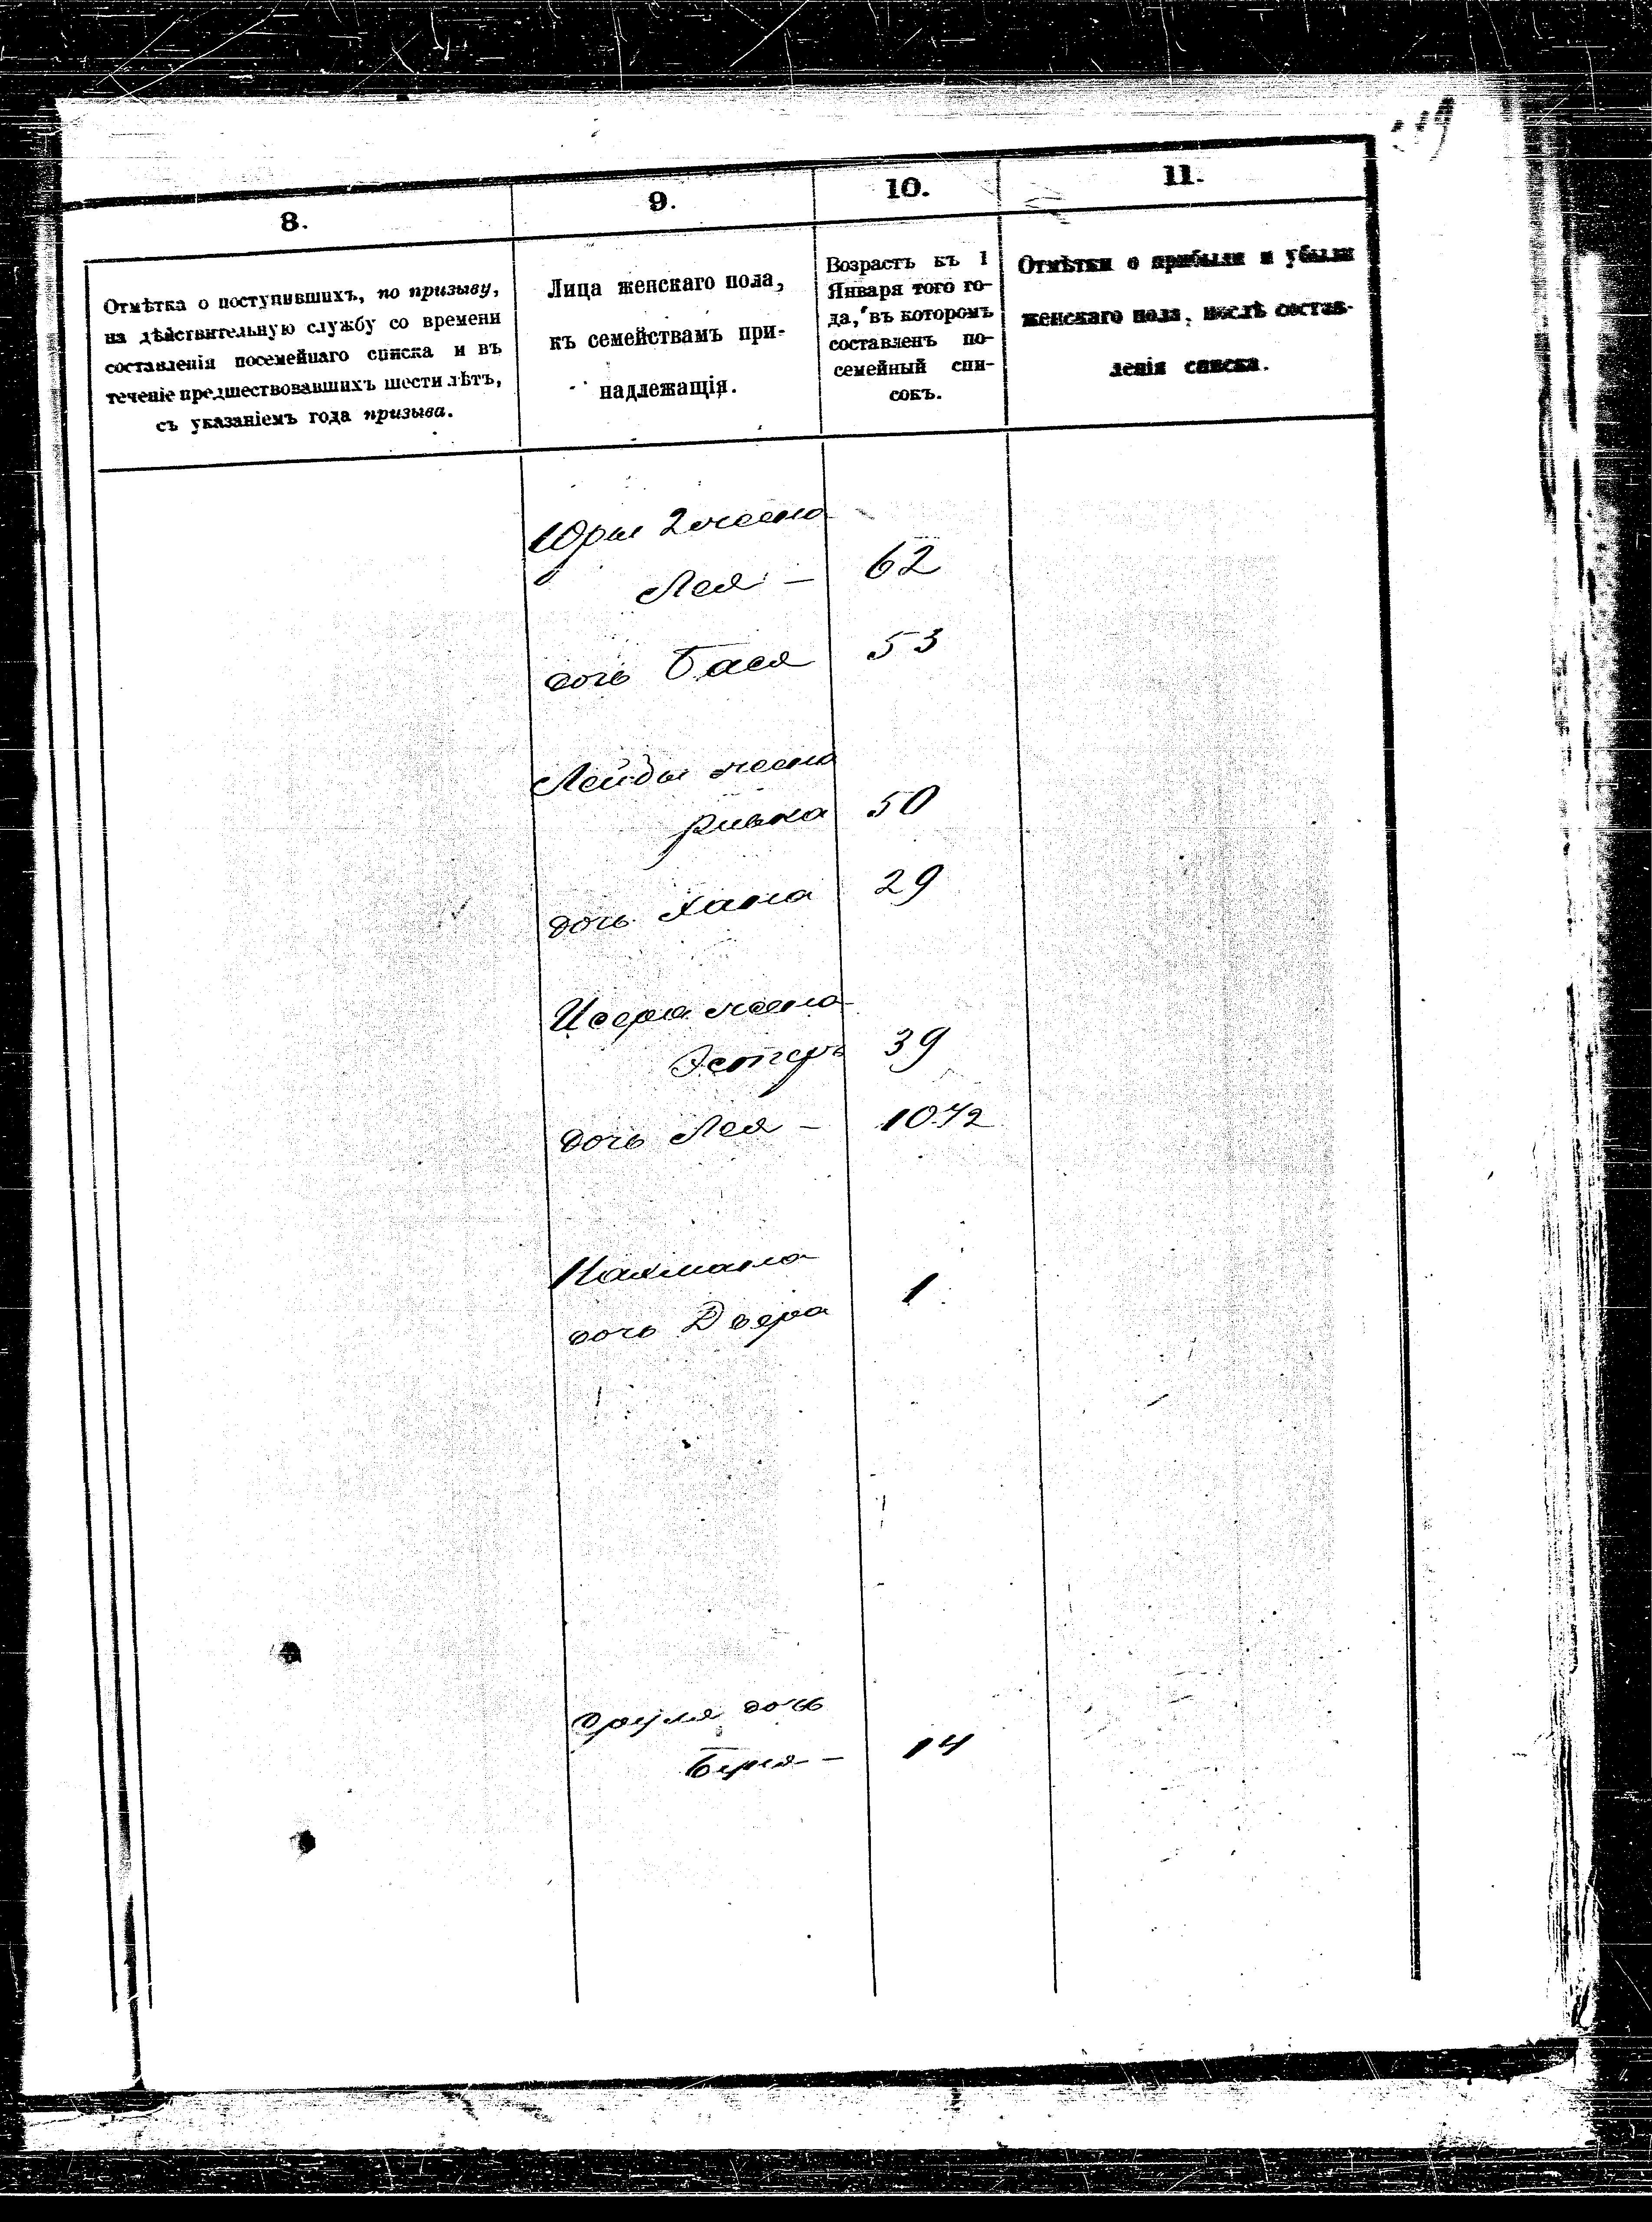 8.
9.
10.
11.
Отмѣтка о поступившихъ, по призыву,
на дѣйствительную службу со времени
составленія посемейнаго списка и въ
теченіе предшествовавшихъ шести лѣтъ,
съ указаніемъ года призыва.
Лица женскаго пола,
къ семействамъ при-
надлежащія.
Возрастъ къ 1
Января того го-
да, въ которомъ
составленъ по-
семейный спи-
сокъ.
Отмѣтки о прибыли и убыли
женскаго пола, послѣ состав-
ленія списка.
Юры 2 жена
Лея – 62
дочь Бася 53
Лейбы жена
Ривка 50
дочь Хана 29
жена
Эстеръ 39
дочь Лея – 10 1/2
Нахмана
дочь Двера 1
Сруля дочь
14